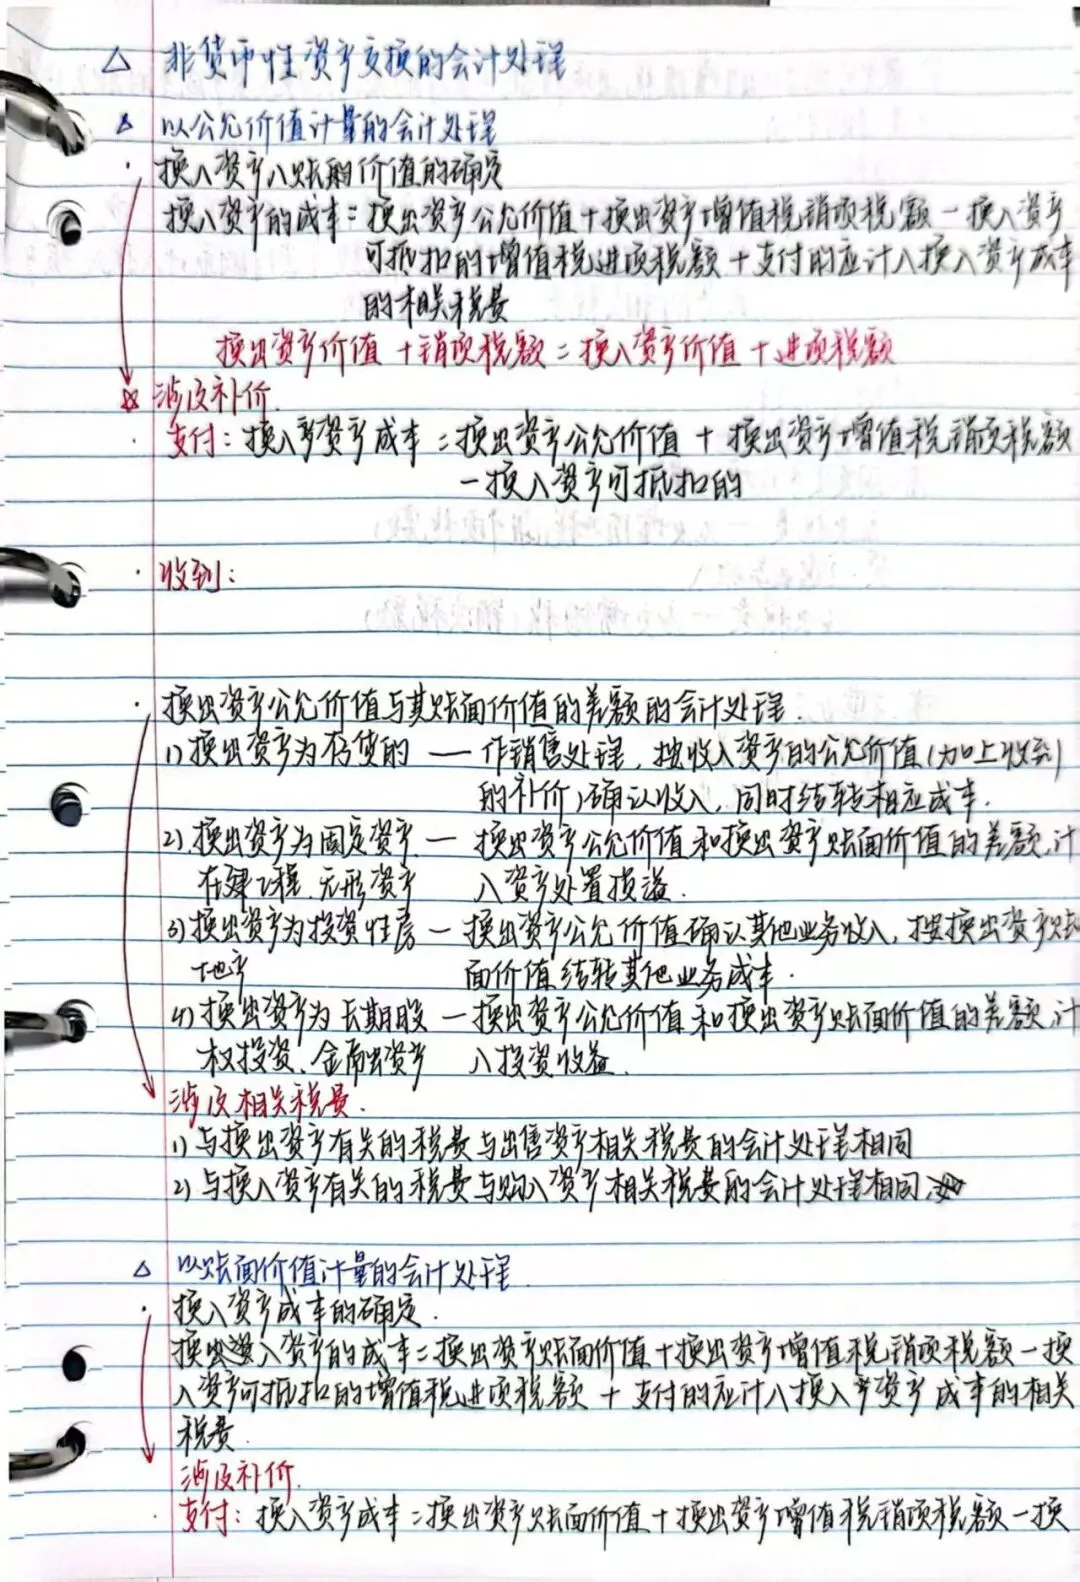 △ 非货币性资产交换的会计处理
△ 以公允价值计量的会计处理
· 换入资产入账的价值的确定
换入资产的成本=换出资产公允价值+换出资产增值税销项税额-换入资产
可抵扣的增值税进项税额+支付的应计入换入资产成本
的相关税费
换出资产价值+销项税额=换入资产价值+进项税额
☆ 涉及补价.
· 支付:换入资产成本=换出资产公允价值+换出资产增值税销项税额
-换入资产可抵扣的
· 收到:
· 换出资产公允价值与其账面价值的差额的会计处理.
1)换出资产为存货的 — 作销售处理,按收入资产的公允价值(加上收到
的补价)确认收入,同时结转相应成本.
2).换出资产为固定资产. — 换出资产公允价值和换出资产账面价值的差额,计
在建工程.无形资产 入资产处置损溢.
3)换出资产为投资性房 — 换出资产公允价值确认其他业务收入,按换出资产账
地产 面价值结转其他业务成本.
4)换出资产为长期股 — 换出资产公允价值和换出资产账面价值的差额,计
权投资、金融资产 入投资收益.
涉及相关税费.
1)与换出资产有关的税费与出售资产相关税费的会计处理相同
2)与换入资产有关的税费与购入资产相关税费的会计处理相同.
△ 以账面价值计量的会计处理.
· 换入资产成本的确定.
换入资产的成本=换出资产账面价值+换出资产增值税销项税额-换
入资产可抵扣的增值税进项税额+支付的应计入换入资产成本的相关
税费.
涉及补价.
· 支付:换入资产成本=换出资产账面价值+换出资产增值税销项税额-换